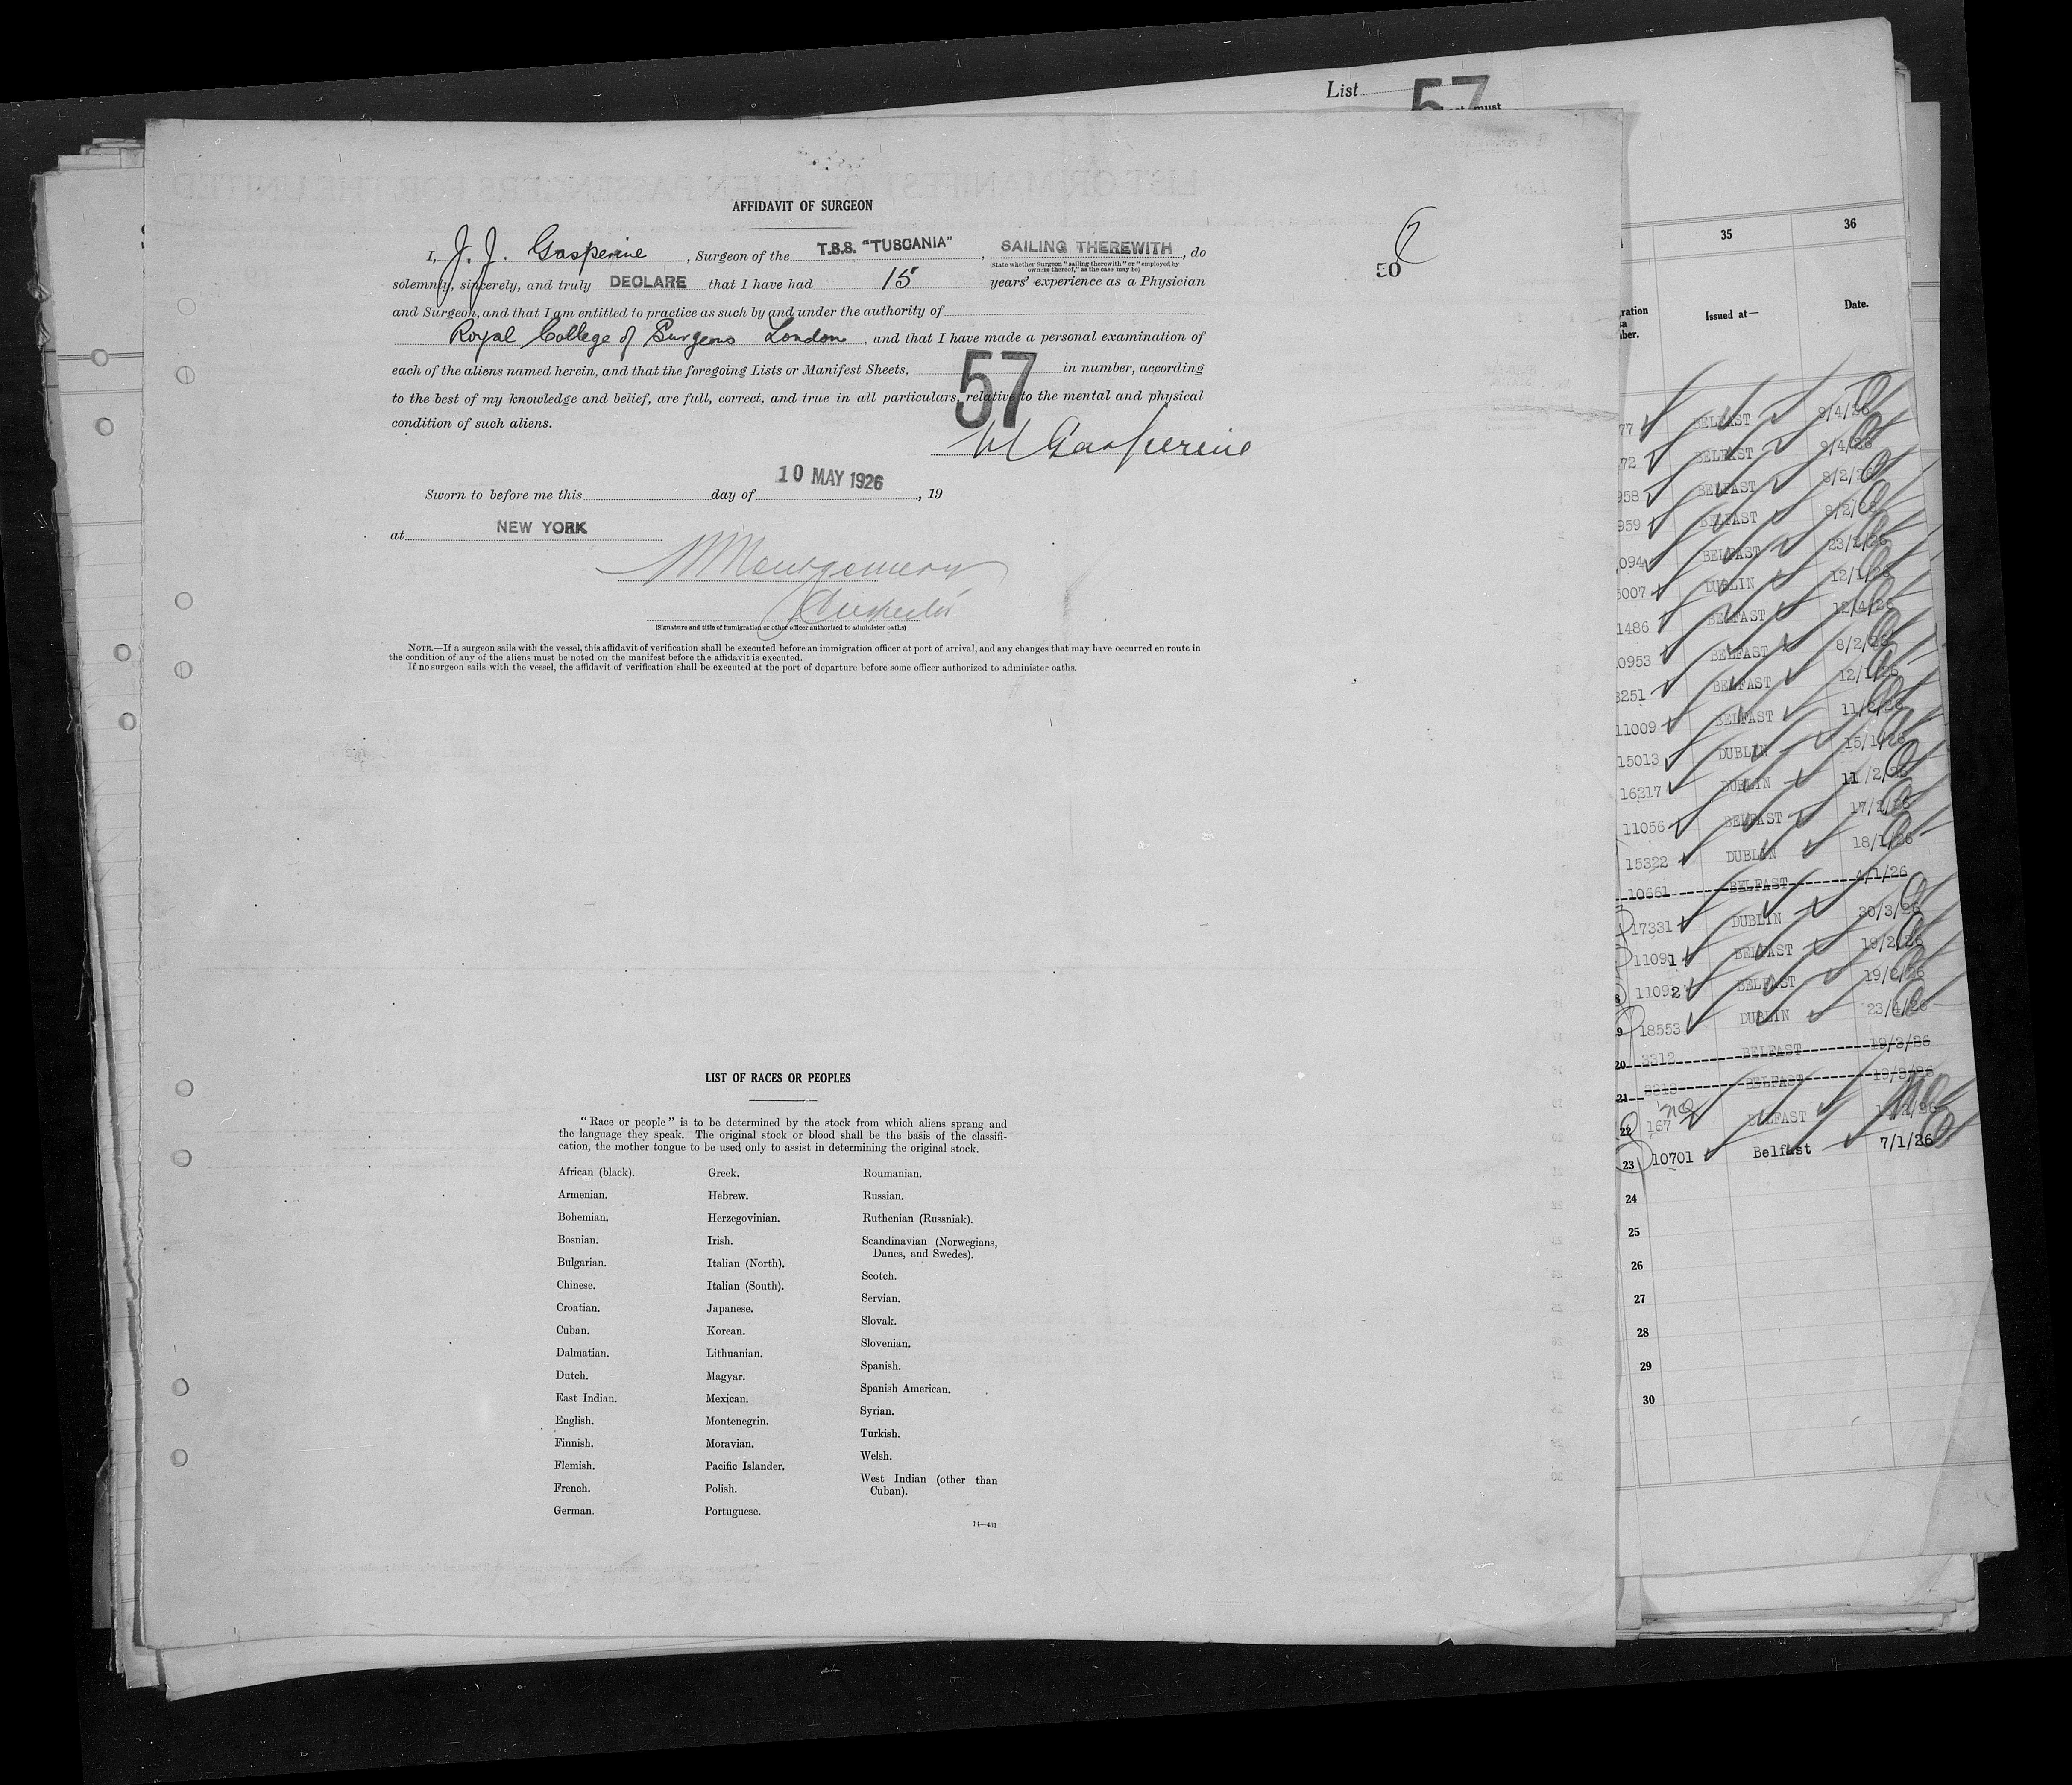 List 57
AFFIDAVIT OF SURGEON
I, J. J. Gasperine, Surgeon of the T.S.S. "TUSCANIA", SAILING THEREWITH, do
(State whether Surgeon "sailing therewith" or "employed by
owners thereof," as the case may be)
50
solemnly, sincerely, and truly DECLARE that I have had 15 years' experience as a Physician
and Surgeon, and that I am entitled to practice as such by and under the authority of
Royal College of Surgeons London, and that I have made a personal examination of
each of the aliens named herein, and that the foregoing Lists or Manifest Sheets, 57 in number, according
to the best of my knowledge and belief, are full, correct, and true in all particulars, relative to the mental and physical
condition of such aliens.
Gasperine
Sworn to before me this day of 10 MAY 1926, 19
at NEW YORK
Montgomery
Inspector
(Signature and title of immigration or other officer authorized to administer oaths)
NOTE.—If a surgeon sails with the vessel, this affidavit of verification shall be executed before an immigration officer at port of arrival, and any changes that may have occurred en route in
the condition of any of the aliens must be noted on the manifest before the affidavit is executed.
If no surgeon sails with the vessel, the affidavit of verification shall be executed at the port of departure before some officer authorized to administer oaths.
LIST OF RACES OR PEOPLES
"Race or people" is to be determined by the stock from which aliens sprang and
the language they speak. The original stock or blood shall be the basis of the classifi-
cation, the mother tongue to be used only to assist in determining the original stock.
African (black).
Armenian.
Bohemian.
Bosnian.
Bulgarian.
Chinese.
Croatian.
Cuban.
Dalmatian.
Dutch.
East Indian.
English.
Finnish.
Flemish.
French.
German.
Greek.
Hebrew.
Herzegovinian.
Irish.
Italian (North).
Italian (South).
Japanese.
Korean.
Lithuanian.
Magyar.
Mexican.
Montenegrin.
Moravian.
Pacific Islander.
Polish.
Portuguese.
Roumanian.
Russian.
Ruthenian (Russniak).
Scandinavian (Norwegians,
Danes, and Swedes).
Scotch.
Servian.
Slovak.
Slovenian.
Spanish.
Spanish American.
Syrian.
Turkish.
Welsh.
West Indian (other than
Cuban).
14—431
35 36
Issued at— Date.
77 BELFAST 9/4/26
72 BELFAST 9/4/26
958 BELFAST 8/2/26
959 BELFAST 8/2/26
094 BELFAST 23/2/26
5007 DUBLIN 12/1/26
1486 BELFAST 12/4/26
0953 BELFAST 8/2/26
3251 BELFAST 12/1/26
11009 BELFAST 11/2/26
15013 DUBLIN 15/1/26
16217 DUBLIN 11/2/26
11056 BELFAST 17/2/26
15322 DUBLIN 18/1/26
10661 BELFAST 4/1/26
17331 DUBLIN 30/3/26
11091 BELFAST 19/2/26
11092 BELFAST 19/2/26
18553 DUBLIN 23/4/26
20 3312 BELFAST 19/3/26
21 3313 BELFAST 19/3/26
22 167 NQ BELFAST
23 10701 Belfast 7/1/26
24
25
26
27
28
29
30